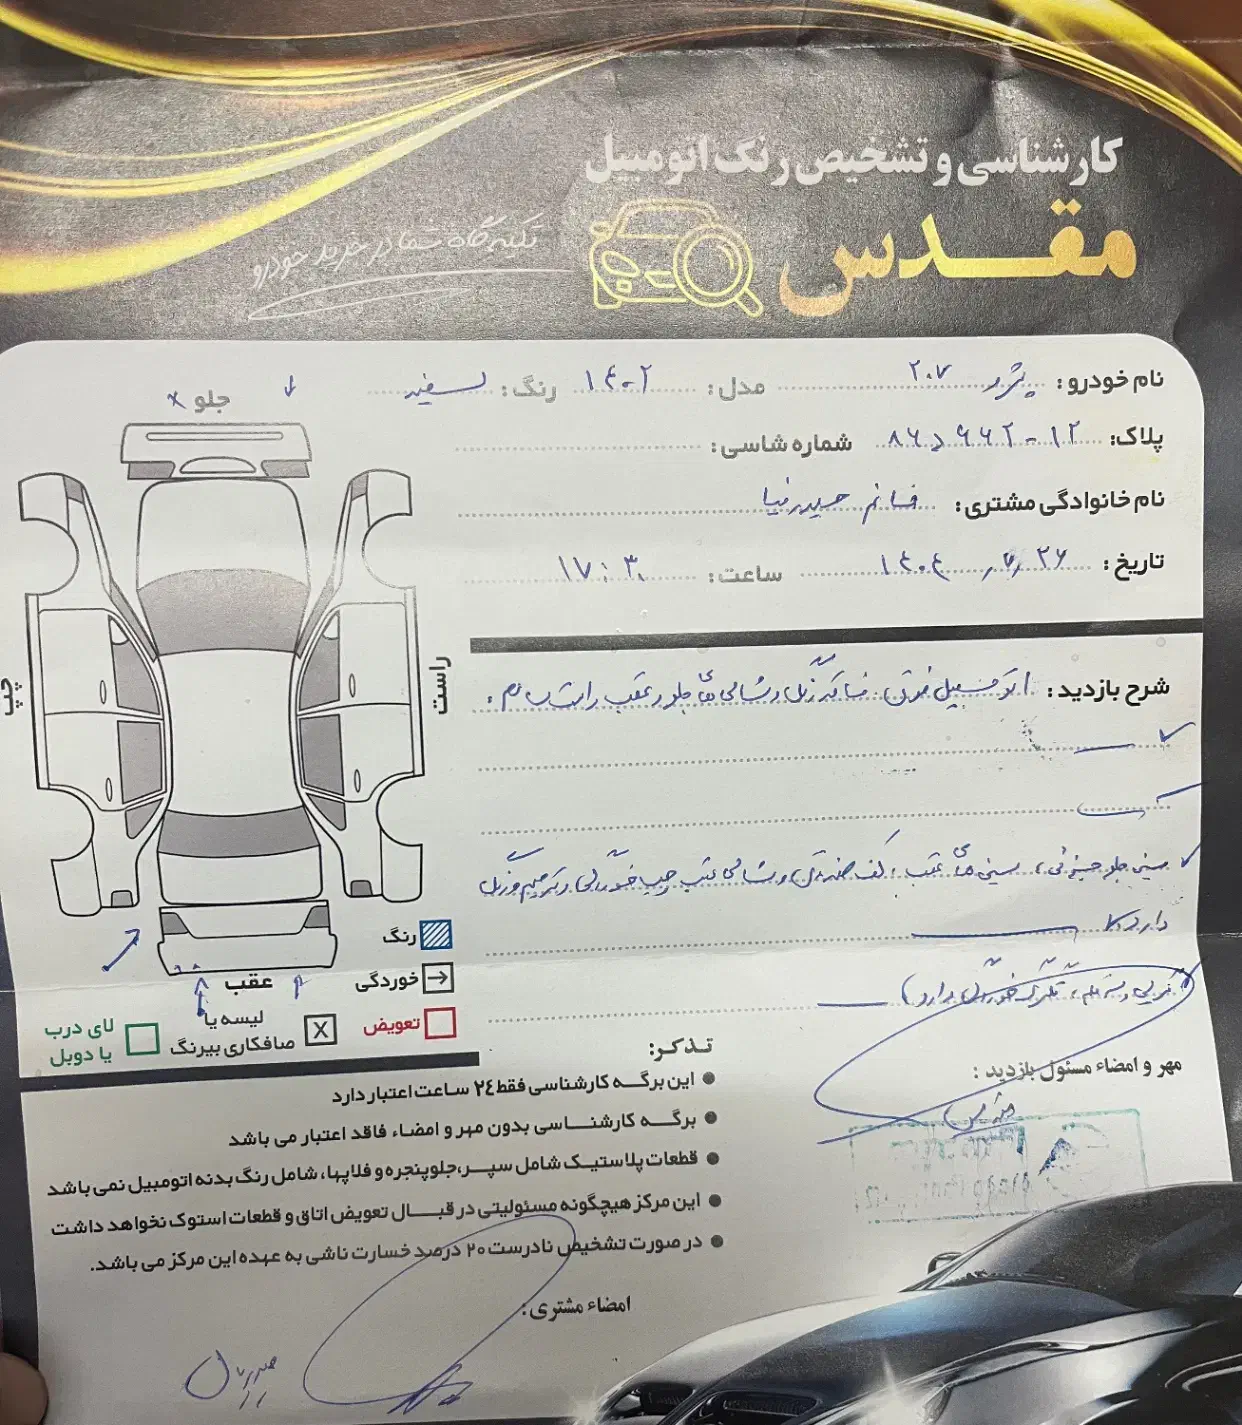 کارشناسی و تشخیص رنگ اتومبیل
مقدس
تکیه گاه شما در خرید خودرو
نام خودرو: پژو ۲۰۷ مدل: ۱۴۰۲ رنگ: سفید
پلاک: شماره شاسی:
نام خانوادگی مشتری: خانم حیدرنیا
تاریخ: ۱۴۰۴ ۲۶ ساعت: ۱۷:۳۰
جلو x
چپ
راست
عقب
شرح بازدید: اتومبیل فوق، شاسی های جلو و عقب راست سالم
سینی جلو جزئی، سینی های عقب، کف صندوق و شاسی عقب چپ خوردگی و ترمیم و رنگ
دارد
رنگ
خوردگی
تعویض
لیسه یا صافکاری بیرنگ
X
لای درب یا دوبل
مهر و امضاء مسئول بازدید:
تذکر:
این برگه کارشناسی فقط ۲٤ ساعت اعتبار دارد
برگه کارشناسی بدون مهر و امضاء فاقد اعتبار می باشد
قطعات پلاستیک شامل سپر، جلوپنجره و فلاپها، شامل رنگ بدنه اتومبیل نمی باشد
این مرکز هیچگونه مسئولیتی در قبال تعویض اتاق و قطعات استوک نخواهد داشت
در صورت تشخیص نادرست ۲۰ درصد خسارت ناشی به عهده این مرکز می باشد.
امضاء مشتری: